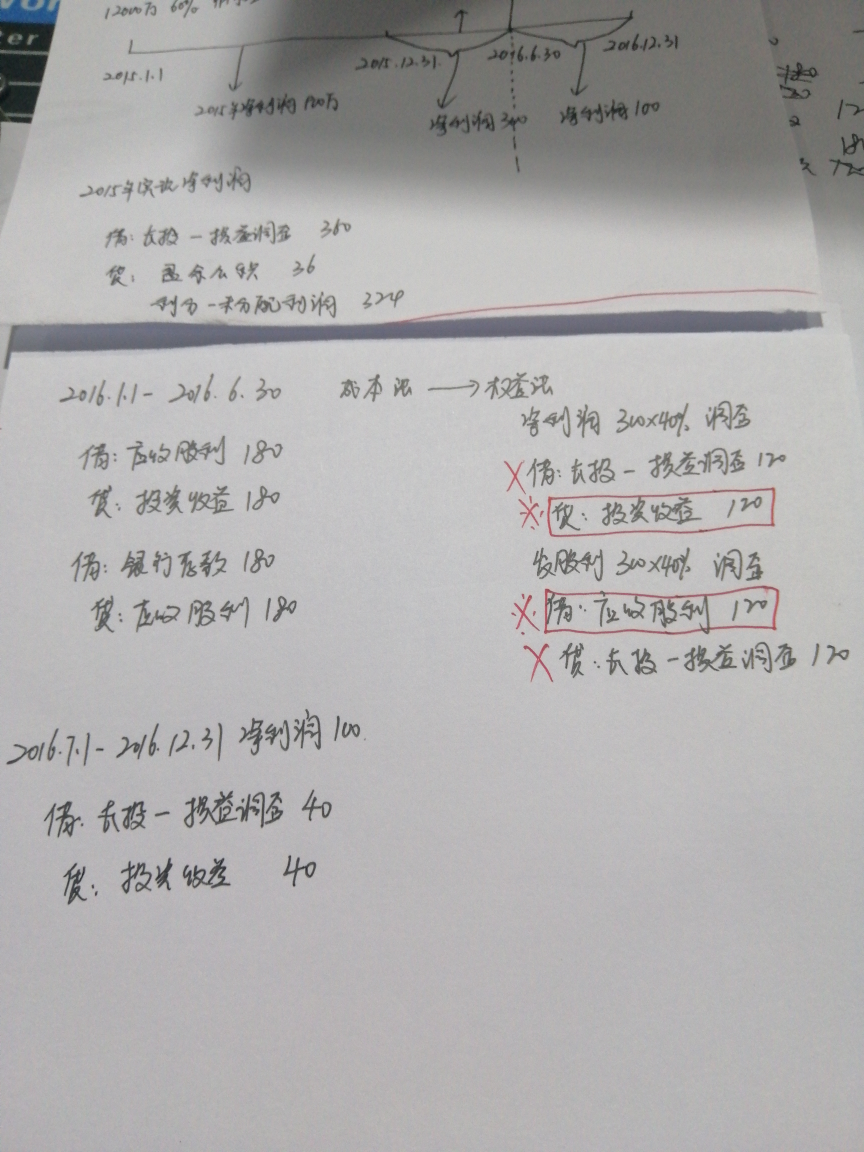 12000万 60%
2015.1.1
2015.12.31
2016.6.30
2016.12.31
2015年净利润
净利润
净利润 100
2015年实现净利润
借: 长投一损益调整 360
贷: 盈余公积 36
利分一未分配利润 324
2016.1.1- 2016.6.30 成本法 → 权益法
借: 应收股利 180
贷: 投资收益 180
借: 银行存款 180
贷: 应收股利 180
净利润 300×40% 调整
×借: 长投一损益调整 120
※贷: 投资收益 120
发股利 300×40% 调整
※借: 应收股利 120
×贷: 长投一损益调整 120
2016.7.1-2016.12.31 净利润100.
借: 长投一损益调整 40
贷: 投资收益 40